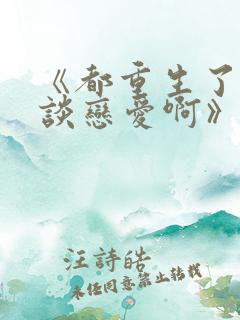 《都重生了
談戀愛啊》
汪詩皓
未任同意禁止轉載